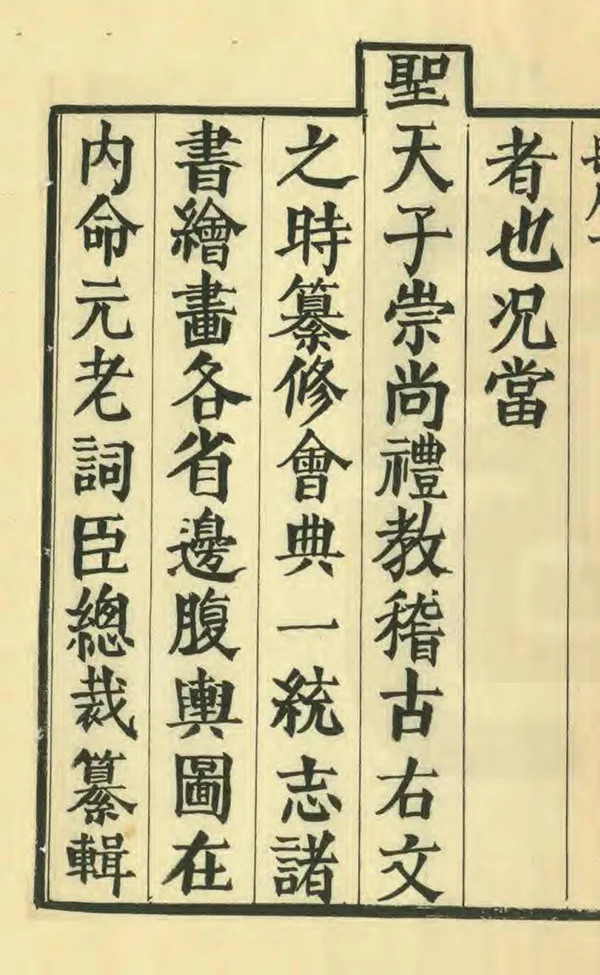 者也况當
聖天子崇尚禮教稽古右文
之時纂修會典一統志諸
書繪畫各省邊腹輿圖在
内命元老詞臣總裁纂輯